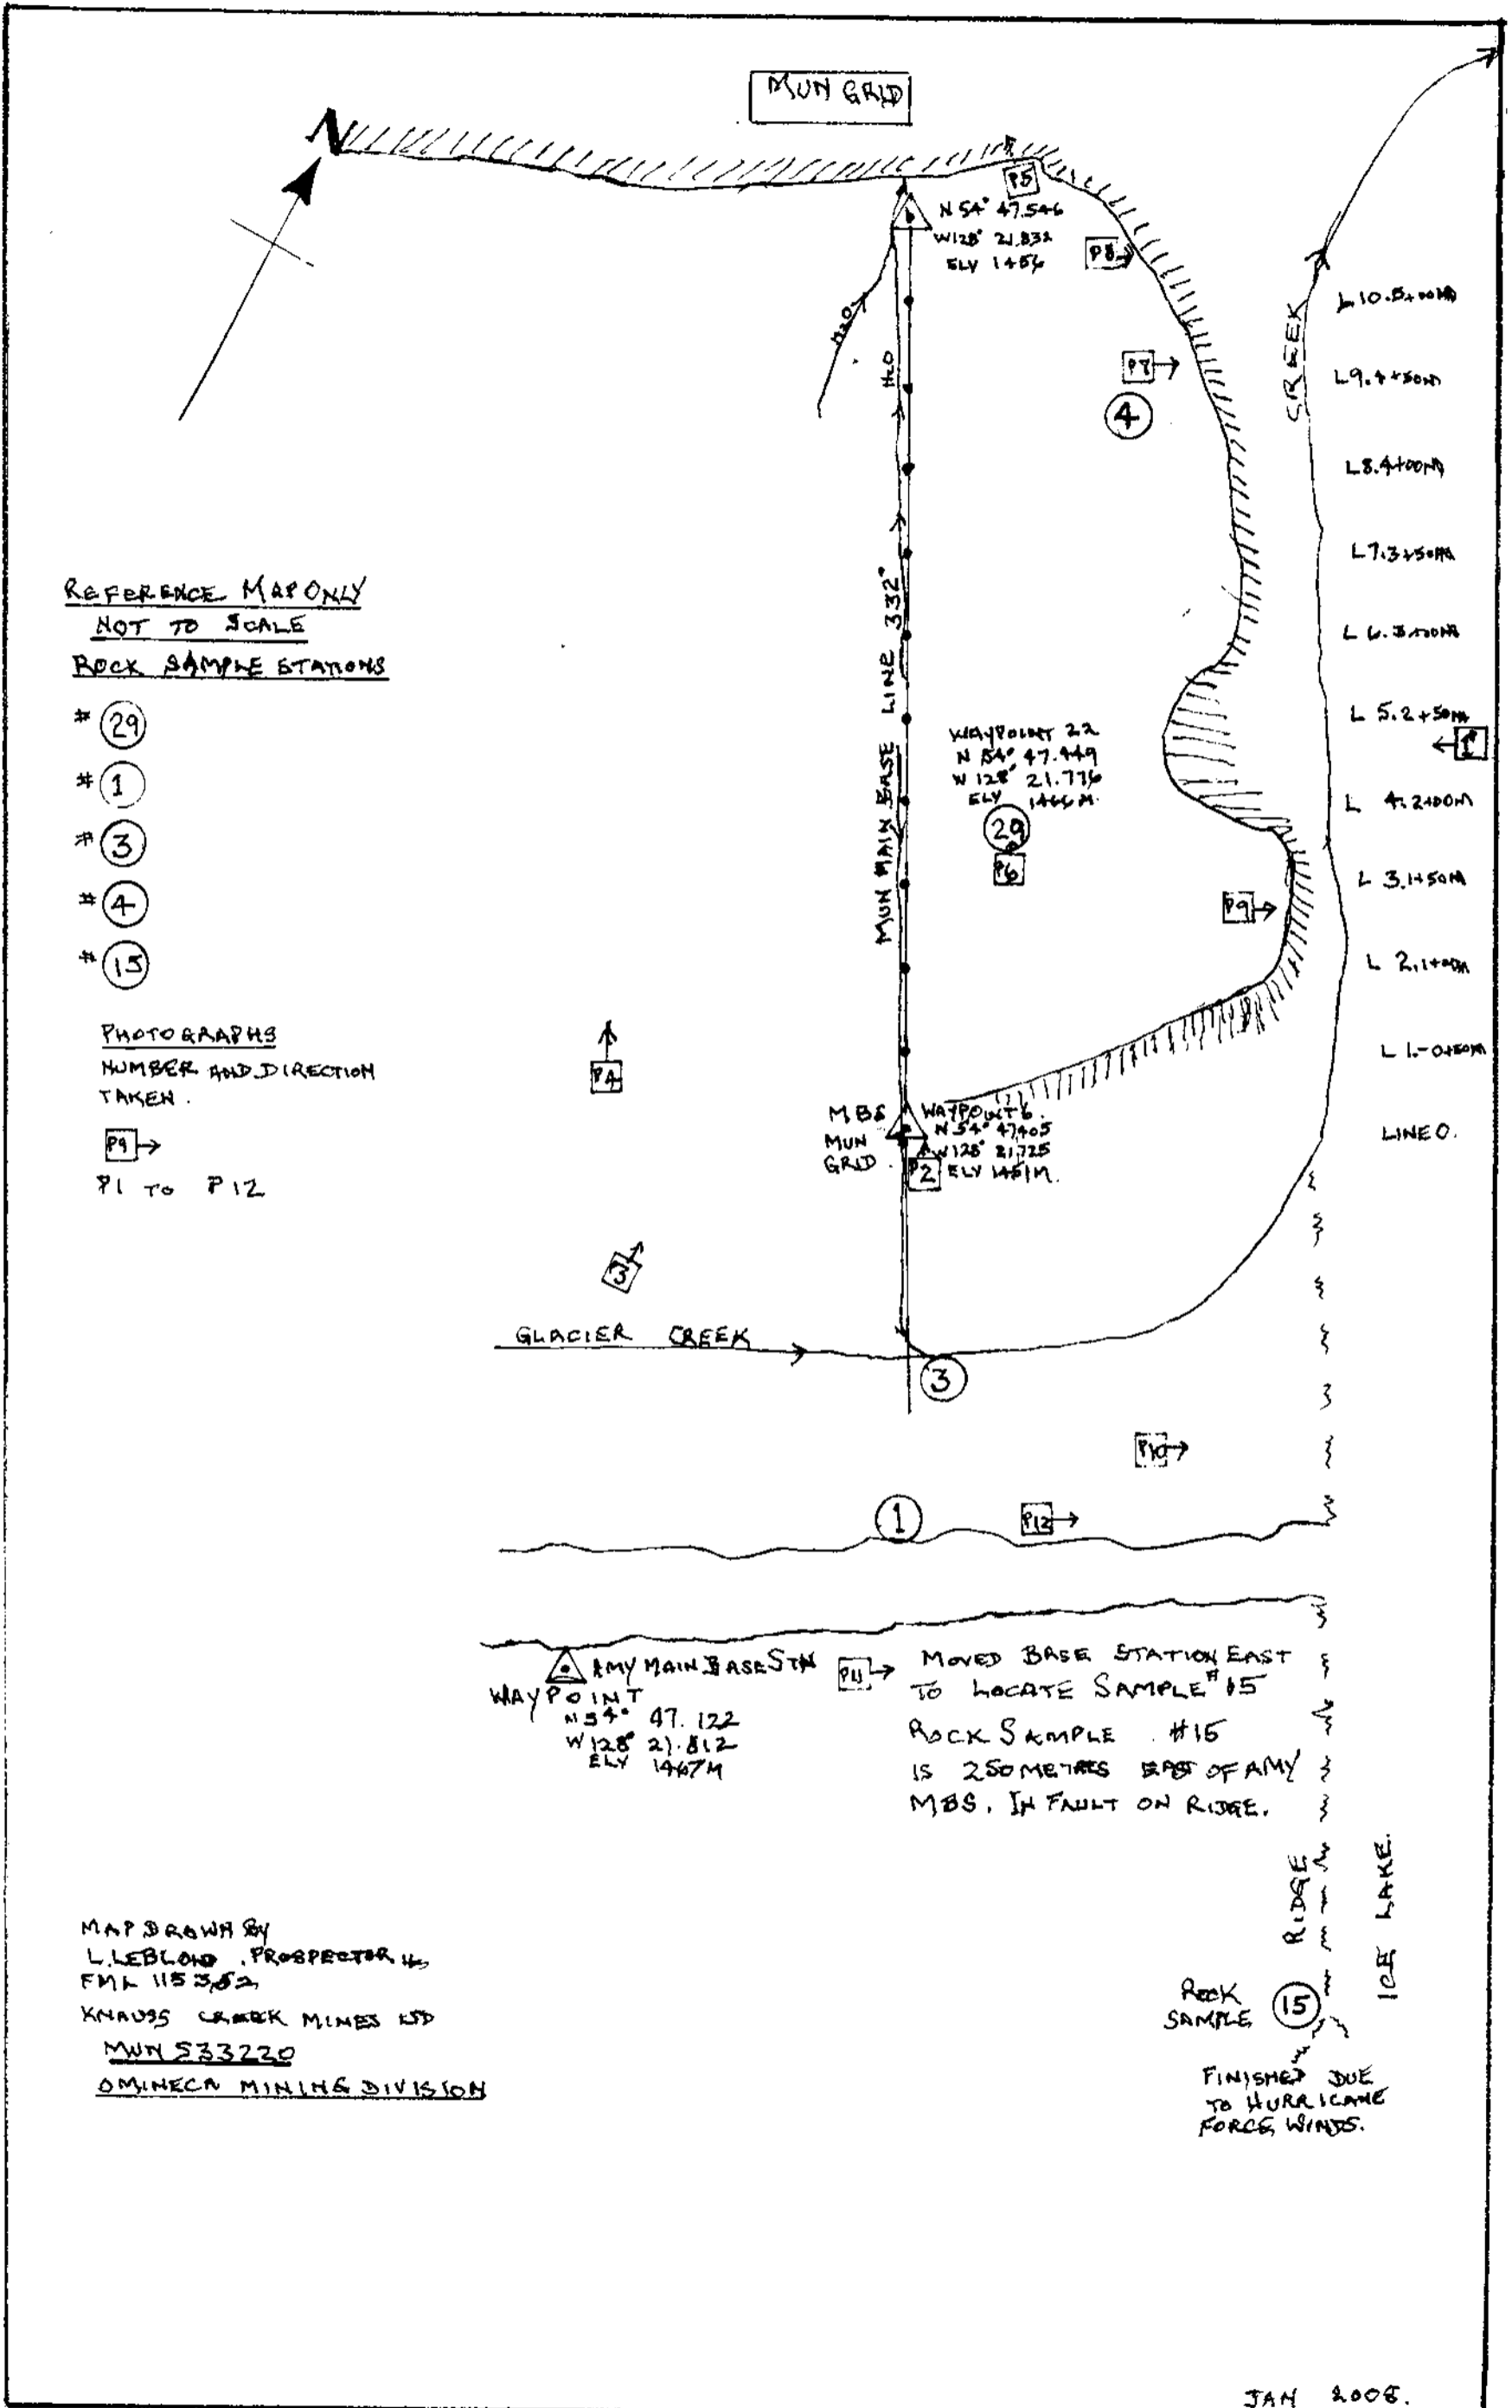 MUN GRID
N
P5
N 54° 47.546
W128° 21.832
ELV 1456
P8
H2O
H2O
P7
4
CREEK
L10.5+00M
L9.4+50M
L8.4+00M
L7.3+50M
L 6.3+00M
L 5.2+50M
1
L 4.2+00M
L 3.1+50M
L 2.1+00M
L 1.-0+50M
LINE O.
REFERENCE MAP ONLY
NOT TO SCALE
ROCK SAMPLE STATIONS
# 29
# 1
# 3
# 4
# 15
PHOTOGRAPHS
NUMBER AND DIRECTION
TAKEN.
P9
P1 TO P12
MUN MAIN BASE LINE 332°
WAYPOINT 22
N 54° 47.449
W 128° 21.776
ELV 1466M.
29
P6
P9
P4
MBS
MUN
GRID
WAYPOINT 6.
N 54° 47,405
W128° 21,725
ELV 1451M.
P2
3
GLACIER CREEK
3
P10
1
P12
AMY MAIN BASE STN
WAYPOINT
N54° 47.122
W128° 21.812
ELV 1467M
P11
MOVED BASE STATION EAST
TO LOCATE SAMPLE #15
ROCK SAMPLE #15
IS 250 METRES EAST OF AMY
MBS. IN FAULT ON RIDGE.
RIDGE
ICE LAKE.
ROCK
SAMPLE
15
FINISHED DUE
TO HURRICANE
FORCE WINDS.
MAP DRAWN BY
L.LEBLOND. PROSPECTOR
KNAUSS CREEK MINES LTD
MUN 533220
OMINECA MINING DIVISION
JAN 2008.